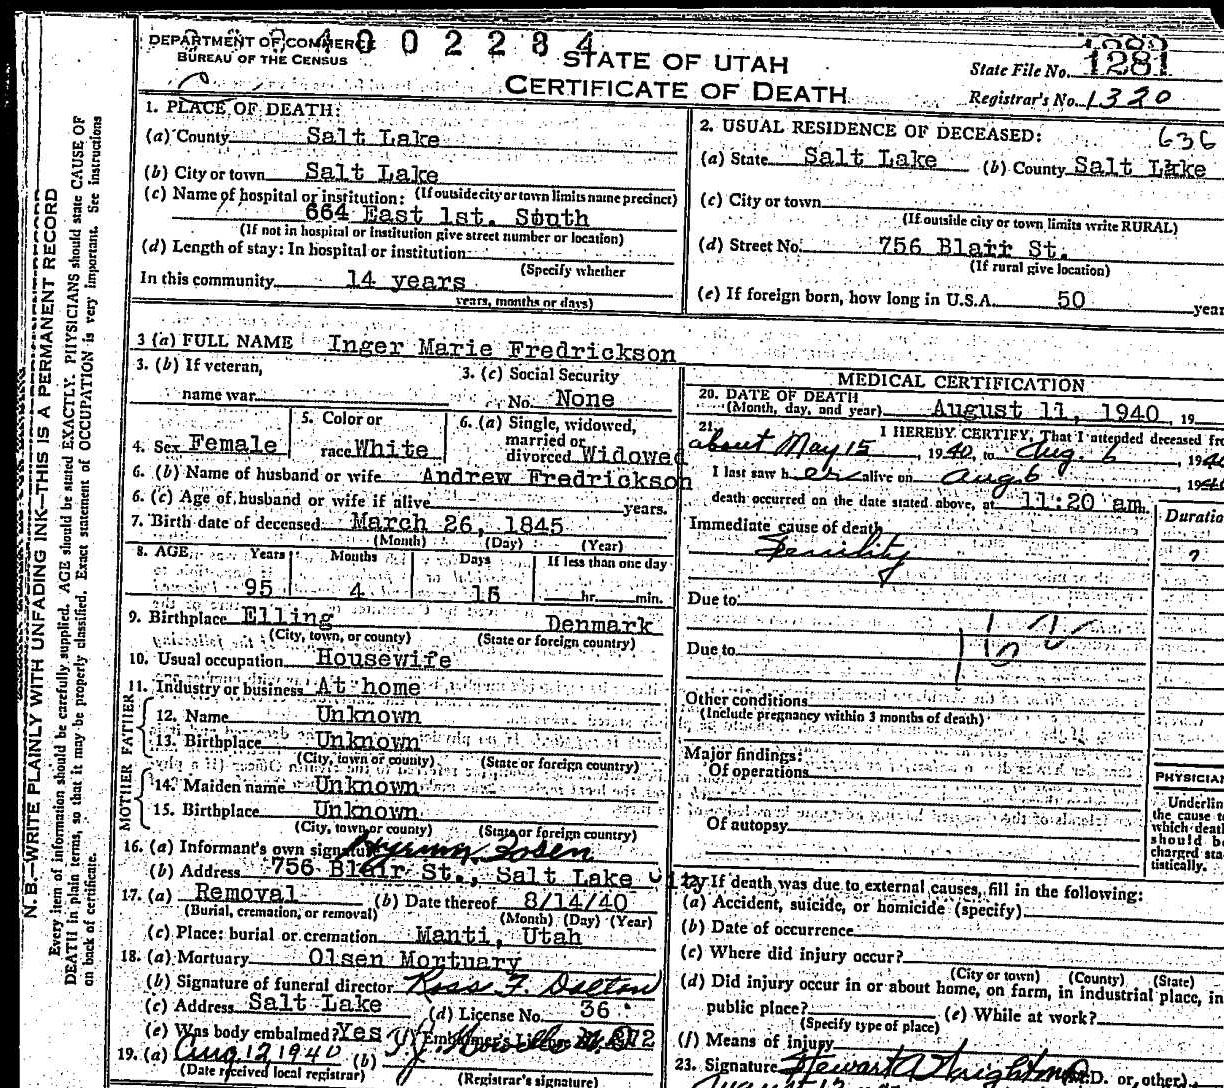 DEPARTMENT OF COMMERCE
BUREAU OF THE CENSUS
4 0 0 2 2 8 4
STATE OF UTAH
CERTIFICATE OF DEATH
State File No. 1281
Registrar's No. 1320
1. PLACE OF DEATH:
(a) County Salt Lake
(b) City or town Salt Lake
(If outside city or town limits name precinct)
(c) Name of hospital or institution:
664 East 1st. South
(If not in hospital or institution give street number or location)
(d) Length of stay: In hospital or institution
(Specify whether
In this community 14 years
years, months or days)
2. USUAL RESIDENCE OF DECEASED: 636
(a) State Salt Lake (b) County Salt Lake
(c) City or town
(If outside city or town limits write RURAL)
(d) Street No. 756 Blair St.
(If rural give location)
(e) If foreign born, how long in U.S.A. 50 year
3 (a) FULL NAME Inger Marie Fredrickson
3. (b) If veteran,
name war
3. (c) Social Security
No. None
4. Sex Female
5. Color or
race White
6. (a) Single, widowed,
married or
divorced Widowed
6. (b) Name of husband or wife Andrew Fredrickson
6. (c) Age of husband or wife if alive years.
7. Birth date of deceased March 26, 1845
(Month) (Day) (Year)
8. AGE Years Months Days If less than one day
95 4 15 hr. min.
9. Birthplace Elling Denmark
(City, town, or county) (State or foreign country)
10. Usual occupation Housewife
11. Industry or business At home
FATHER
12. Name Unknown
13. Birthplace Unknown
(City, town, or county) (State or foreign country)
MOTHER
14. Maiden name Unknown
15. Birthplace Unknown
(City, town or county) (State or foreign country)
16. (a) Informant's own signature
(b) Address 756 Blair St., Salt Lake City
17. (a) Removal (b) Date thereof 8/14/40
(Burial, cremation, or removal) (Month) (Day) (Year)
(c) Place: burial or cremation Manti, Utah
18. (a) Mortuary Olsen Mortuary
(b) Signature of funeral director Ross F. Dalton
(c) Address Salt Lake (d) License No. 36
(e) Was body embalmed? Yes (f) Embalmer's License No. 372
19. (a) Aug 12 1940 (b)
(Date received local registrar) (Registrar's signature)
MEDICAL CERTIFICATION
20. DATE OF DEATH
(Month, day, and year) August 11, 1940, 19
21. I HEREBY CERTIFY, That I attended deceased fro
about May 15, 1940, to Aug. 6, 1940
I last saw her alive on Aug 6, 1940
death occurred on the date stated above, at 11:20 am.
Immediate cause of death Duratio
Senility ?
Due to
162
Due to
Other conditions
(Include pregnancy within 3 months of death)
Major findings:
Of operations
Of autopsy
PHYSICIAN
Underlin
the cause t
which deat
should b
charged sta
tistically.
22. If death was due to external causes, fill in the following:
(a) Accident, suicide, or homicide (specify)
(b) Date of occurrence
(c) Where did injury occur?
(City or town) (County) (State)
(d) Did injury occur in or about home, on farm, in industrial place, in
public place? (e) While at work?
(Specify type of place)
(f) Means of injury
23. Signature Stewart A Wright M.D. or other)
N. B.—WRITE PLAINLY WITH UNFADING INK—THIS IS A PERMANENT RECORD
Every item of information should be carefully supplied. AGE should be stated EXACTLY. PHYSICIANS should state CAUSE OF
DEATH in plain terms, so that it may be properly classified. Exact statement of OCCUPATION is very important. See instructions
on back of certificate.